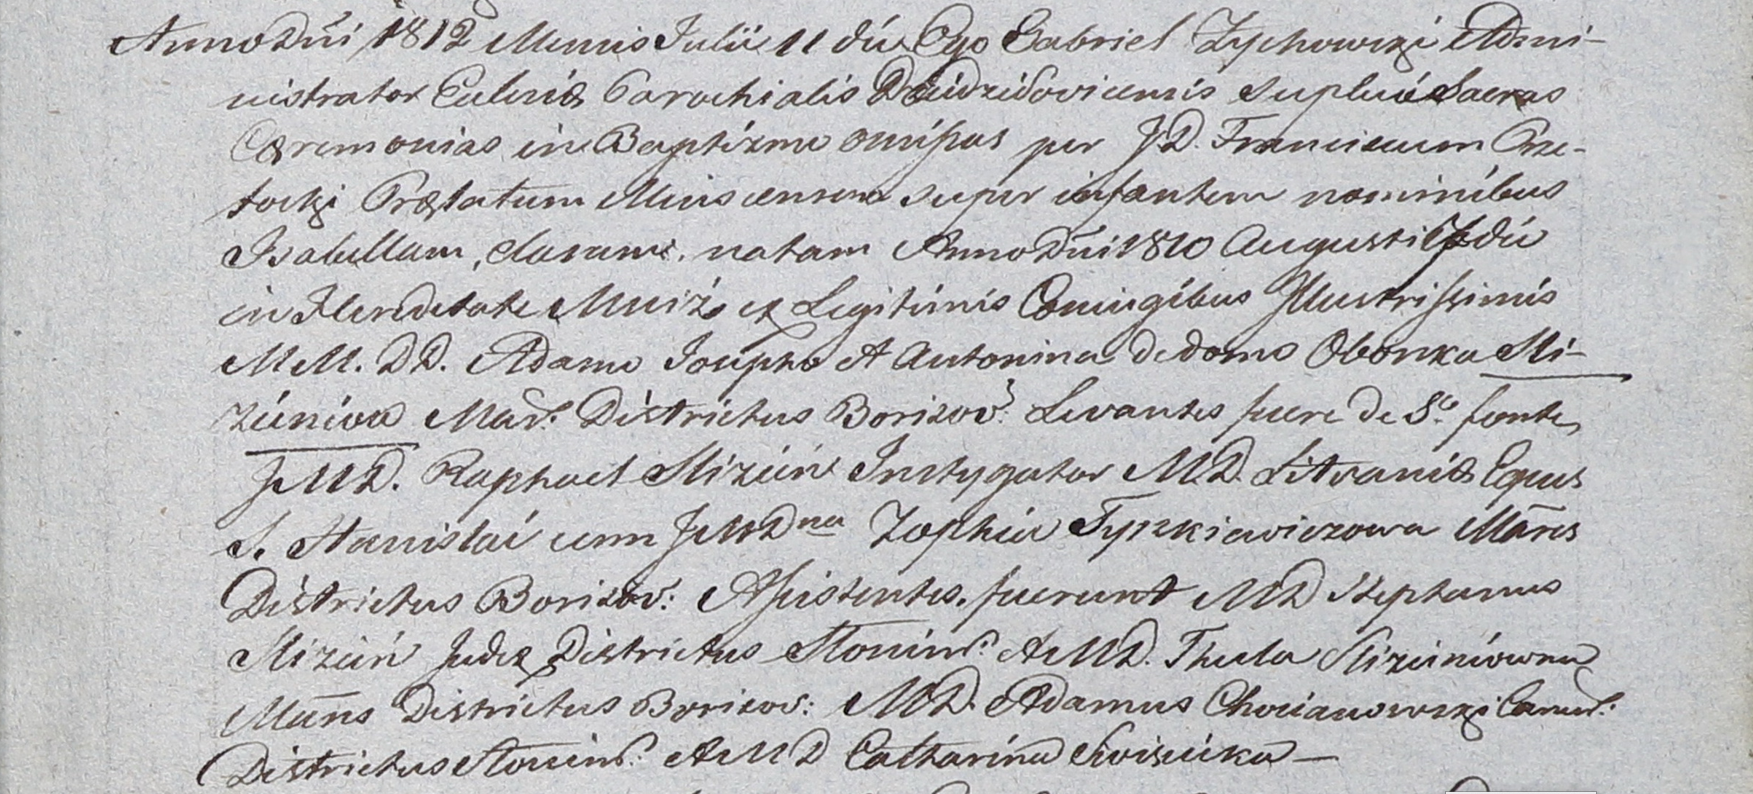 Anno Dñi 1812 Mensis Julii 11 die Ego Gabriel Zychowski Admi-
nistrator Eclesiæ Parochialis Dzidzidovicensis suplevi Sacras
Cæremonias in Baptizmo omissas per J.D. Franciscum Prze-
tocki Prælatum Minscensem super infantem nominibus
Isabellam, Claram, natam Anno Dñi 1810 Augusti die
in Hereditate Muiża ex Legitimis Coniugibus Illustrissimis
M M. D D. Adamo Josepho et Antonina de domo Oborska Sli-
zuniva Mar. Districtus Borisov: Levantes fuere de S. fonte
J M D. Raphael Slizuń Instygator M. D. Litvaniæ Eques
S. Stanislai cum J M D na Zophia Tyszkiewiczowa Mares
Districtus Borisov: Assistentes fuerunt M D Stephanus
Slizuń Judex Districtus Slonims: et M D. Thecla Slizuniówna
Mares Districtus Borisov: M D. Adamus Chocianowski
Districtus Slonims: et M D Catharina